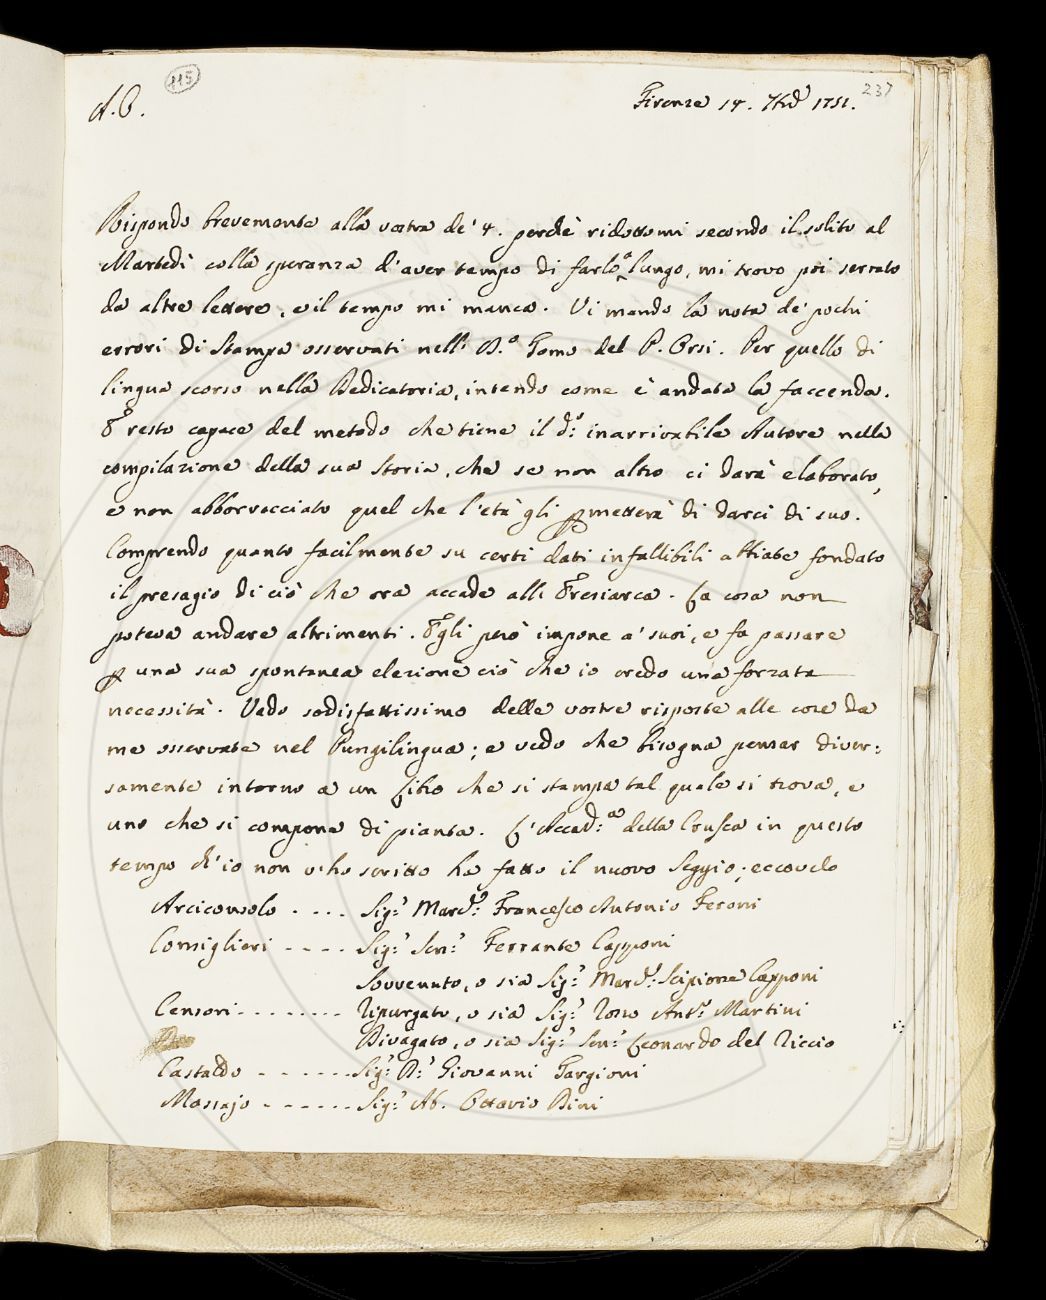 115
237
A. C.
Firenze 14. 7bre 1751.
Rispondo brevemente alla vostra de' 4. perchè ridottomi secondo il solito al
Martedì colla speranza d'aver tempo di farlo a lungo, mi trovo poi serrato
da altre lettere, e il tempo mi manca. Vi mando la nota de' pochi
errori di Stampa osservati nell' Tomo del P. Orsi. Per quello di
lingua scorso nella Dedicatoria, intendo come è andata la faccenda.
E resto capace del metodo che tiene il d.o inarrivabile Autore nella
compilazione della sua Storia, che se non altro ci darà elaborato,
e non abborracciato quel che l'età gli pmetterà di darci di suo.
Comprendo quanto facilmente su certi dati infallibili abbiate fondato
il presagio di ciò che ora accade all' Eresiarca. La cosa non
poteva andare altrimenti. Egli però impone a' suoi, e fa passare
p una sua spontanea elezione ciò che io credo una forzata
necessità. Vado sodisfattissimo delle vostre risposte alle cose da
me osservate nel Pungilingua; e vedo che bisogna pensar diver:
samente intorno a un Libro che si stampa tal quale si trova, e
uno che si compone di pianta. L'Accad:a della Crusca in questo
tempo ch'io non v'ho scritto ha fatto il nuovo Seggio; eccovelo
Arciconsolo . . . . Sig.r March.e Francesco Antonio Feroni
Consiglieri - - - - Sig.r Sen.r Ferrante Capponi
Sovvenuto, o sia Sig.r March.e Scipione Capponi
Censori - - - - - - - - Ripurgato, o sia Sig.r Rosso Ant.o Martini
Divagato, o sia Sig.r Sen.r Leonardo del Riccio
Castaldo - - - - - - - Sig.r D.r Giovanni Targioni
Massajo - - - - - - Sig.r Ab. Ottavio Bini